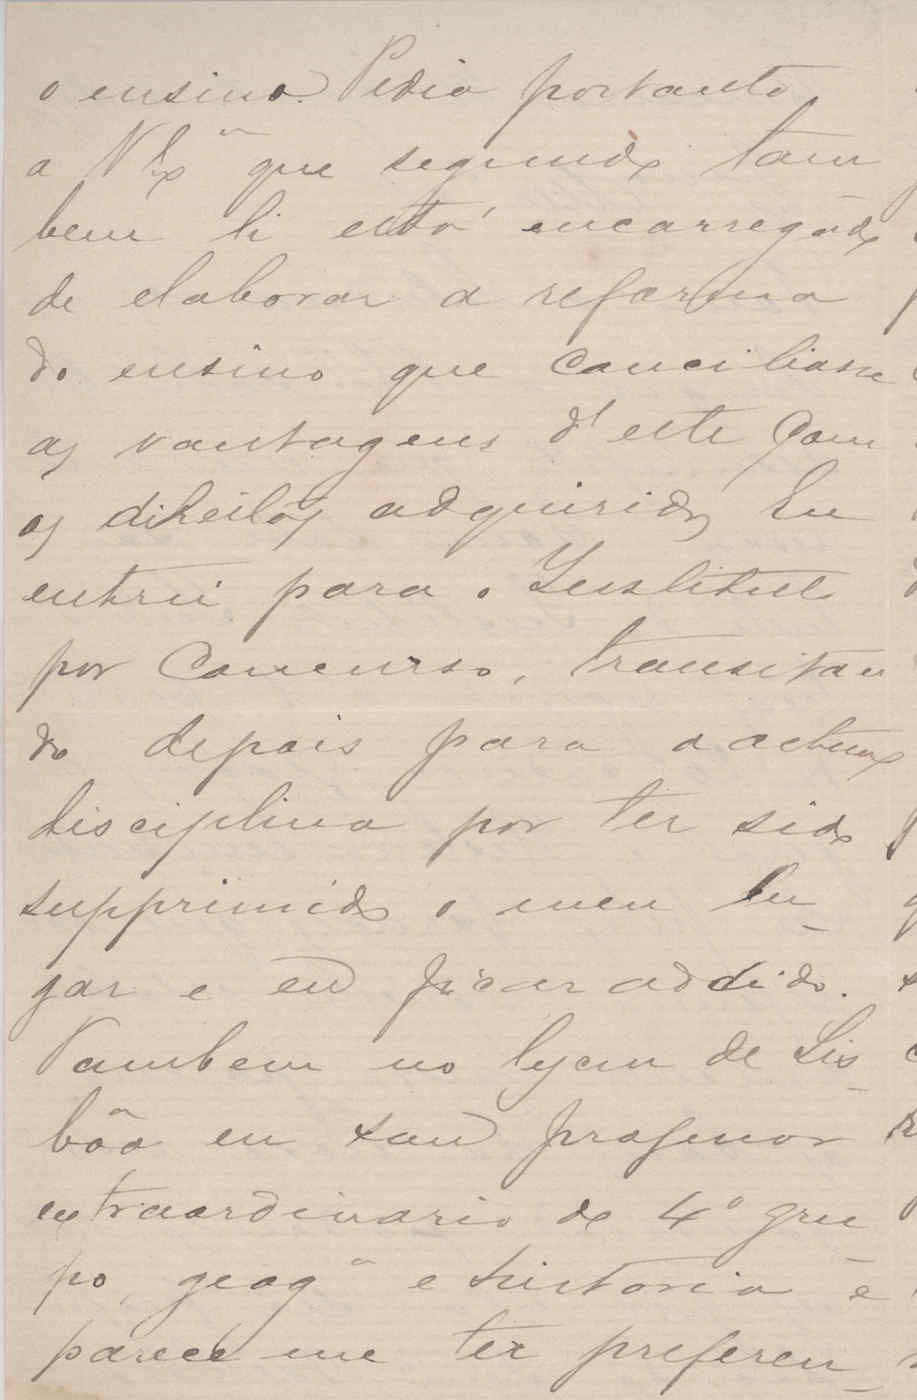 o ensino. Pedia portanto
a V Exª que segundo tam
bem li está encarregado
de elaborar a reforma
do ensino que conciliasse
as vantagens d'este com
os direitos adquiridos Eu
entrei para o Instituto
por concurso, transitan
do depois para a actual
disciplina por ter sido
supprimido o meu lu-
gar e eu ficar addido.
Tambem no lyceu de Lis-
bôa eu sou professor
extraordinario do 4º gru
po, geogª e historia e
parece me ter preferen-